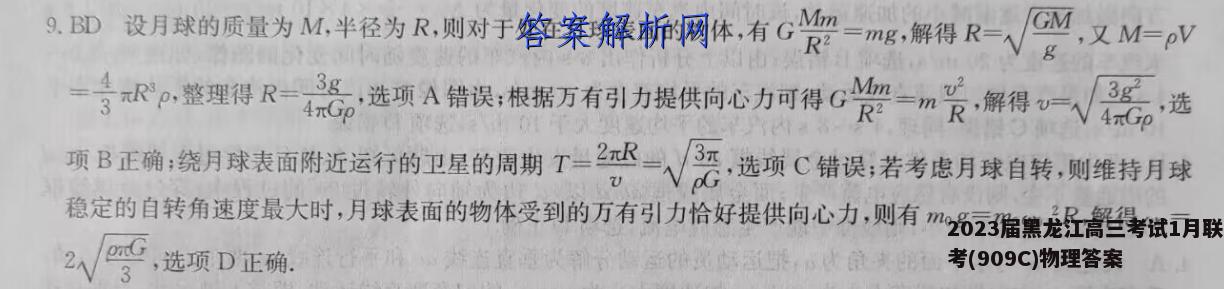 9. BD 设月球的质量为 M,半径为 R,则对于处在 球表面的物体,有 G\frac{Mm}{R^2}=mg,解得 R=\sqrt{\frac{GM}{g}},又 M=ρV
=\frac{4}{3}πR^3ρ,整理得 R=\frac{3g}{4πGρ},选项 A 错误;根据万有引力提供向心力可得 G\frac{Mm}{R^2}=m\frac{v^2}{R},解得 v=\sqrt{\frac{3g^2}{4πGρ}},选
项 B 正确;绕月球表面附近运行的卫星的周期 T=\frac{2πR}{v}=\sqrt{\frac{3π}{ρG}},选项 C 错误;若考虑月球自转,则维持月球
稳定的自转角速度最大时,月球表面的物体受到的万有引力恰好提供向心力,则有 m₀g=m ²R,解得 =
2\sqrt{\frac{ρπG}{3}},选项 D 正确.
答案解析网
2023届黑龙江高三考试1月联
考(909C)物理答案